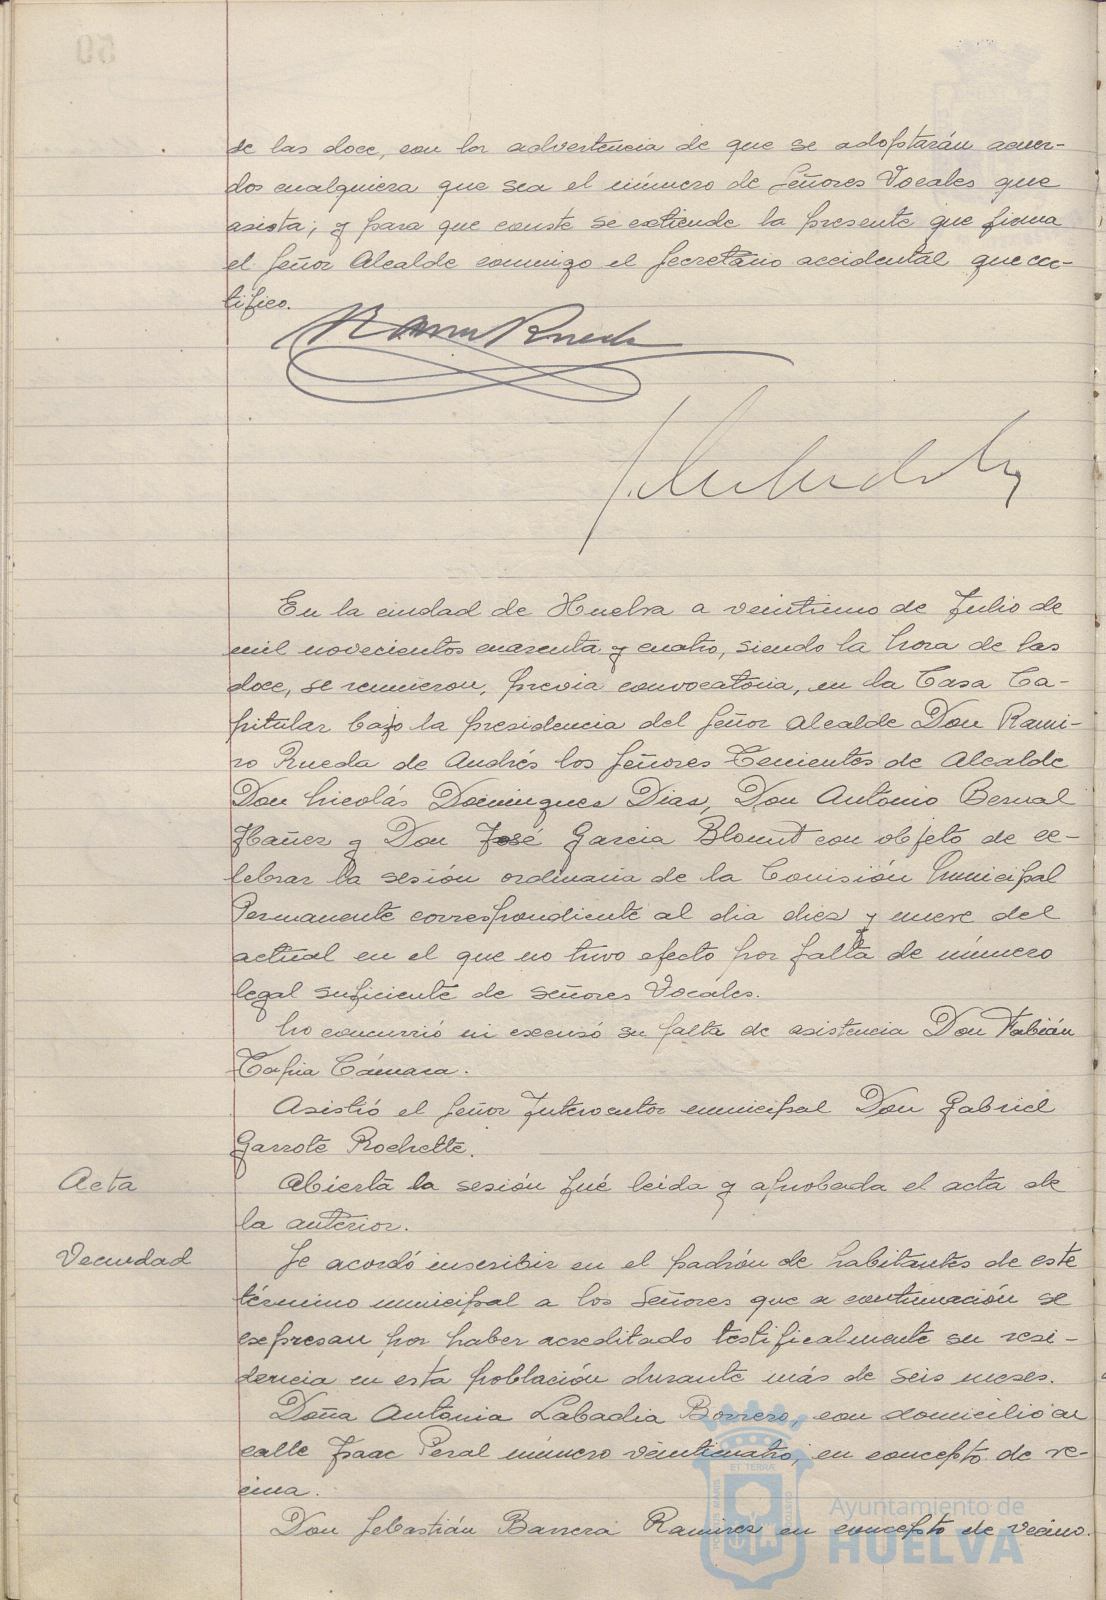 de las doce, con la advertencia de que se adoptarán acuer-
dos cualquiera que sea el número de Señores Vocales que
asista; y para que conste se extiende la presente que firma
el Señor Alcalde conmigo el Secretario accidental que cer-
tifico.
Ramiro Rueda
En la ciudad de Huelva a veintiuno de Julio de
mil novecientos cuarenta y cuatro, siendo la hora de las
doce, se reunieron, previa convocatoria, en la Casa Ca-
pitular bajo la presidencia del Señor Alcalde Don Rami-
ro Rueda de Andrés los Señores Tenientes de Alcalde
Don Nicolás Domínguez Díaz, Don Antonio Bernal
Ybañez y Don José García Blount con objeto de ce-
lebrar la sesión ordinaria de la Comisión Municipal
Permanente correspondiente al dia diez y nueve del
actual en el que no tuvo efecto por falta de número
legal suficiente de señores Vocales.
No concurrió ni excusó su falta de asistencia Don Fabián
Tapia Cámara.
Asistió el Señor Interventor municipal Don Gabriel
Garrote Rochette.
Acta
Abierta la sesión fué leida y aprobada el acta de
la anterior.
Vecindad
Se acordó inscribir en el padrón de habitantes de este
término municipal a los Señores que a continuación se
expresan por haber acreditado testificalmente su resi-
dencia en esta población durante más de seis meses.
Doña Antonia Labadía Borrero, con domicilio en
calle Isaac Peral número veinticuatro, en concepto de ve-
cina.
Don Sebastián Barrera Ramirez en concepto de vecino.
Ayuntamiento de
HUELVA